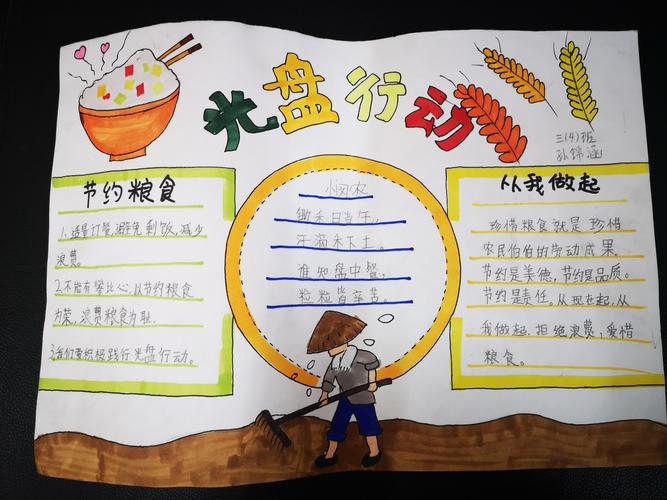 光盘行动
三(4)班
孙锦涵
节约粮食
1.适量打餐,避免剩饭,减少
浪费。
2.不能有攀比心,以节约粮食
为荣,浪费粮食为耻。
3.我们要积极践行光盘行动。
悯农
锄禾日当午,
汗滴禾下土。
谁知盘中餐,
粒粒皆辛苦。
从我做起
珍惜粮食就是珍惜
农民伯伯的劳动成果。
节约是美德,节约是品质。
节约是责任。从现在起,从
我做起,拒绝浪费,爱惜
粮食。